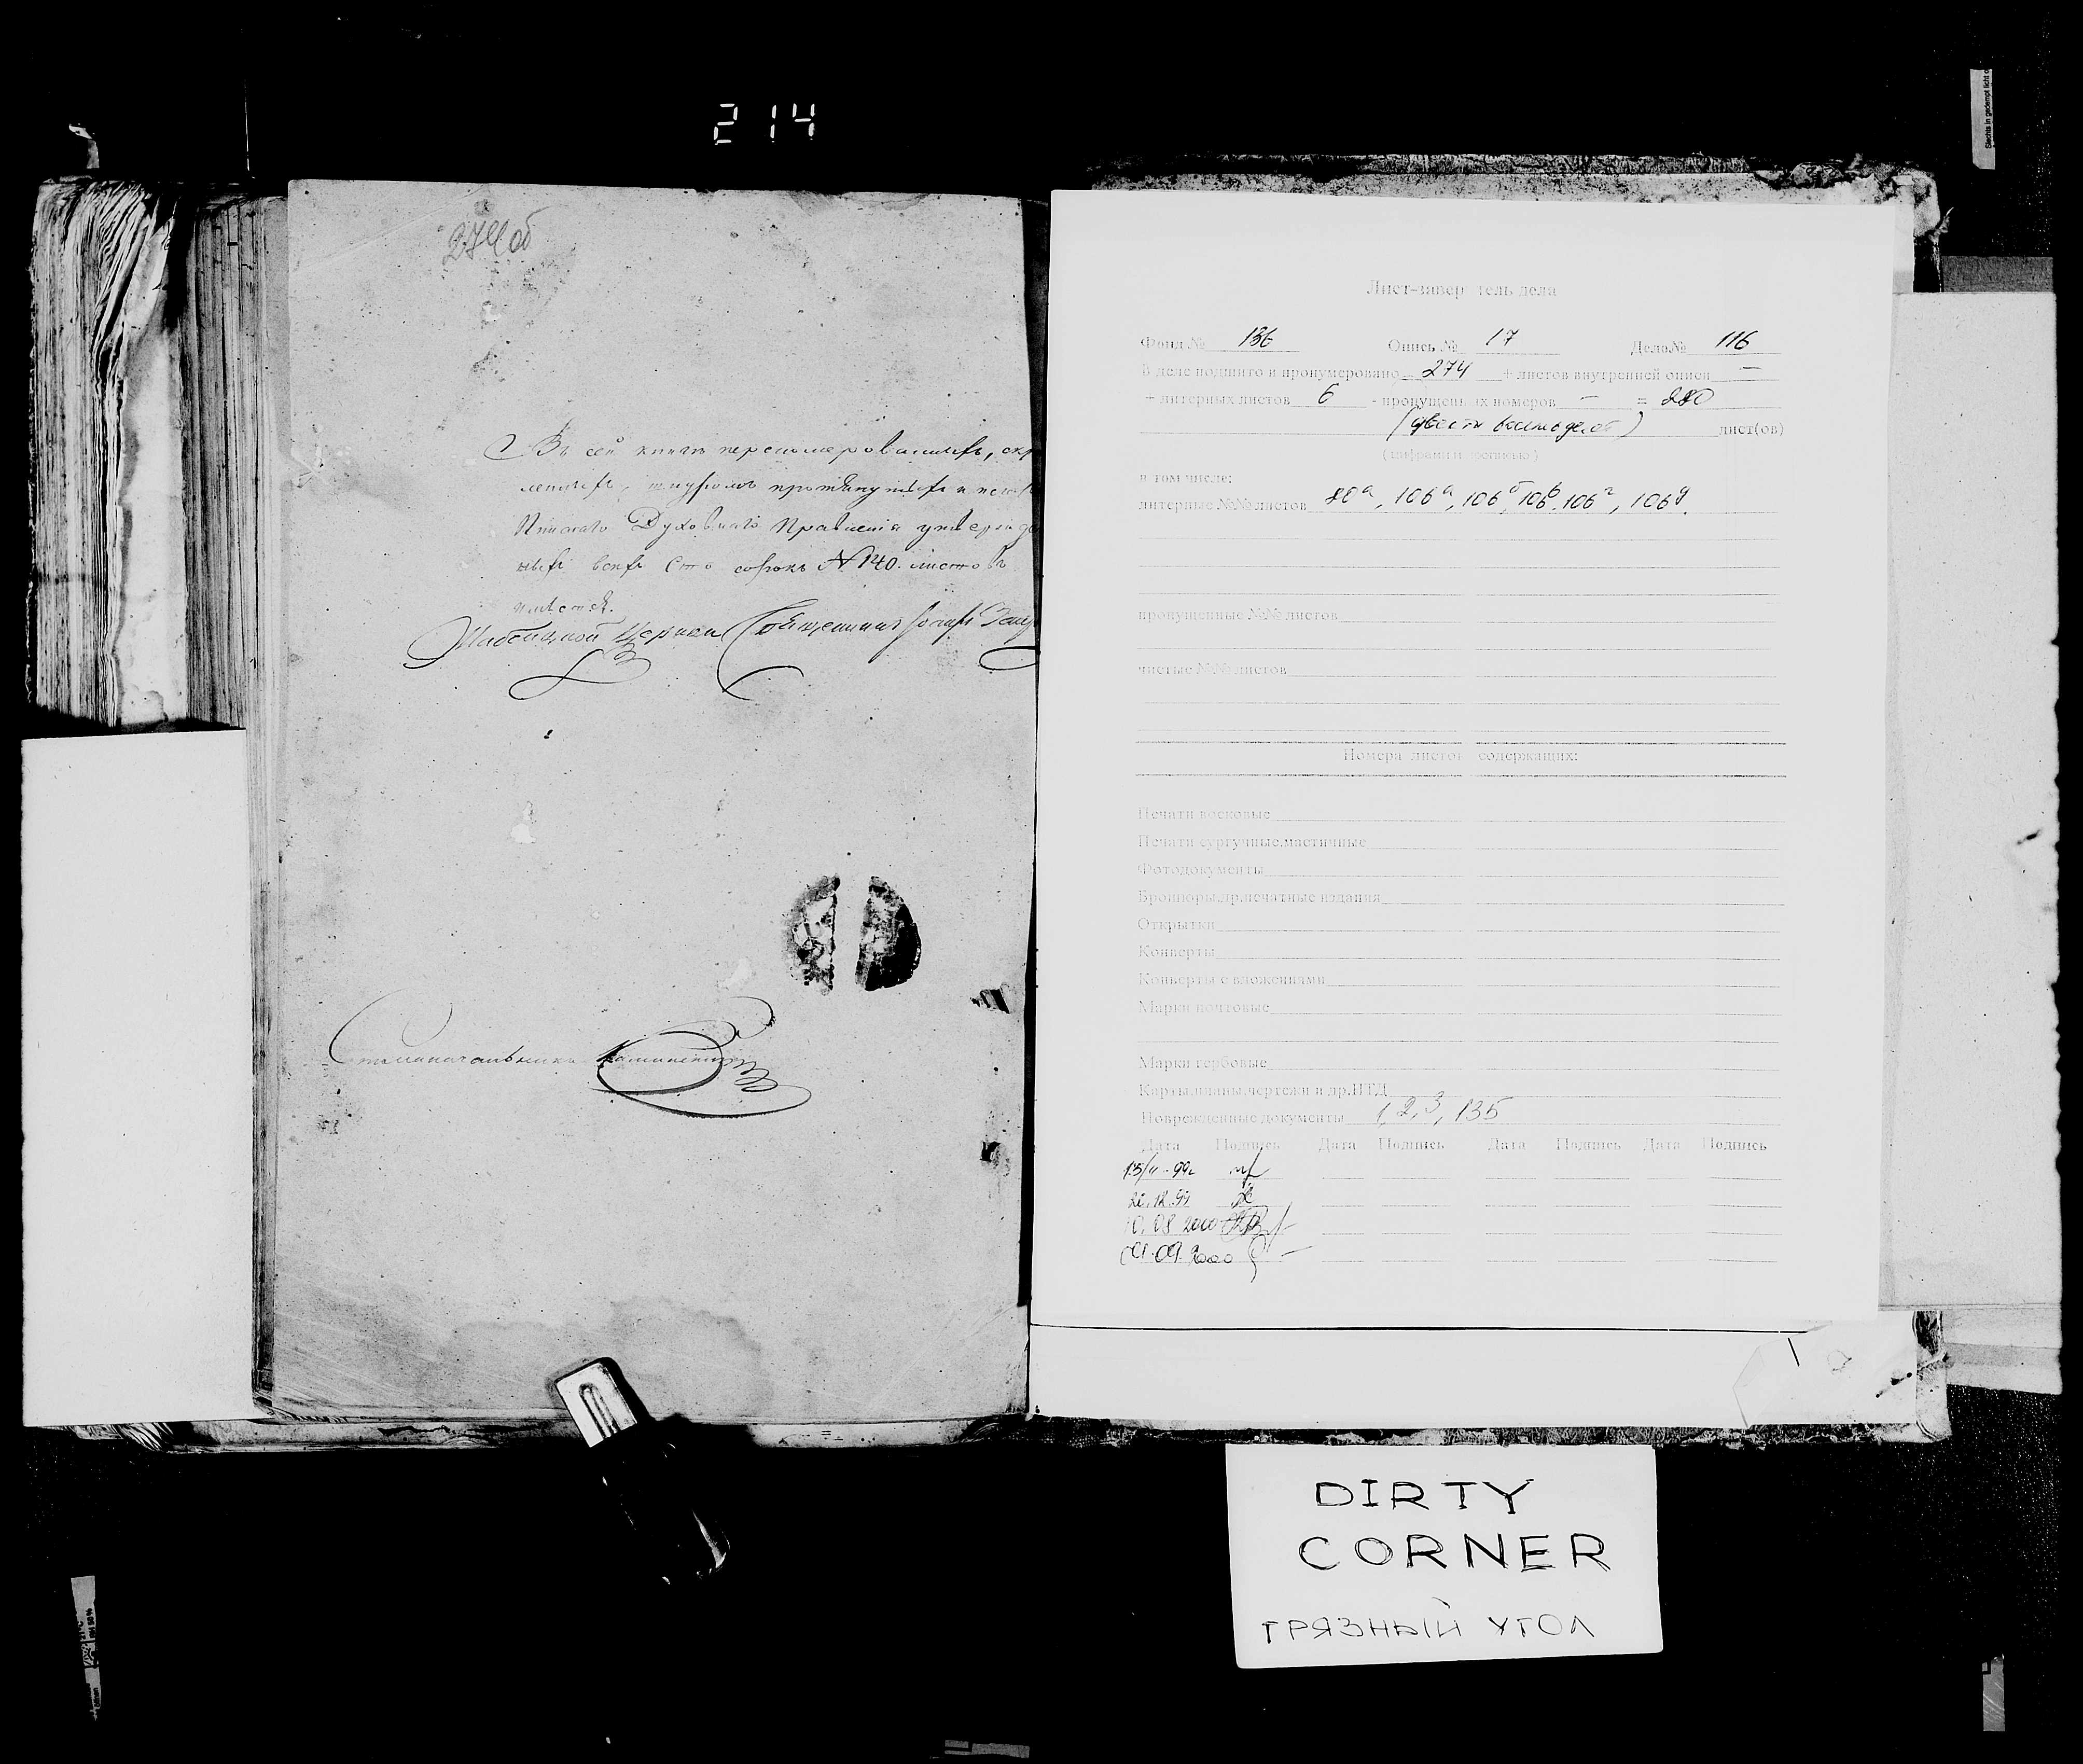 214
274 об
Въ сей книгѣ перенумерованныхъ,
шнуромъ протянутыхъ и
Духовнаго Правленія
ныхъ всехъ Сто сорокъ N 140. листовъ
имѣется.
Церкви Священникъ
Столоначальникъ
Лист-заверитель дела
Фонд № 136 Опись № 17 Дело № 116
В деле подшито и пронумеровано 274 + листов внутренней описи —
+ литерных листов 6 - пропущенных номеров — = 280
(двести восемьдесят) лист(ов)
(цифрами и прописью)
в том числе:
литерные №№ листов 80а, 106а, 106б, 106в, 106г, 106д.
пропущенные №№ листов
чистые №№ листов
Номера листов содержащих:
Печати восковые
Печати сургучные,мастичные
Фотодокументы
Брошюры,др.печатные издания
Открытки
Конверты
Конверты с вложениями
Марки почтовые
Марки гербовые
Карты,планы,чертежи и др.НТД
Поврежденные документы 1, 2, 3, 135
Дата Подпись Дата Подпись Дата Подпись Дата Подпись
10.08.2000
01.09.2000
DIRTY
CORNER
ГРЯЗНЫЙ УГОЛ